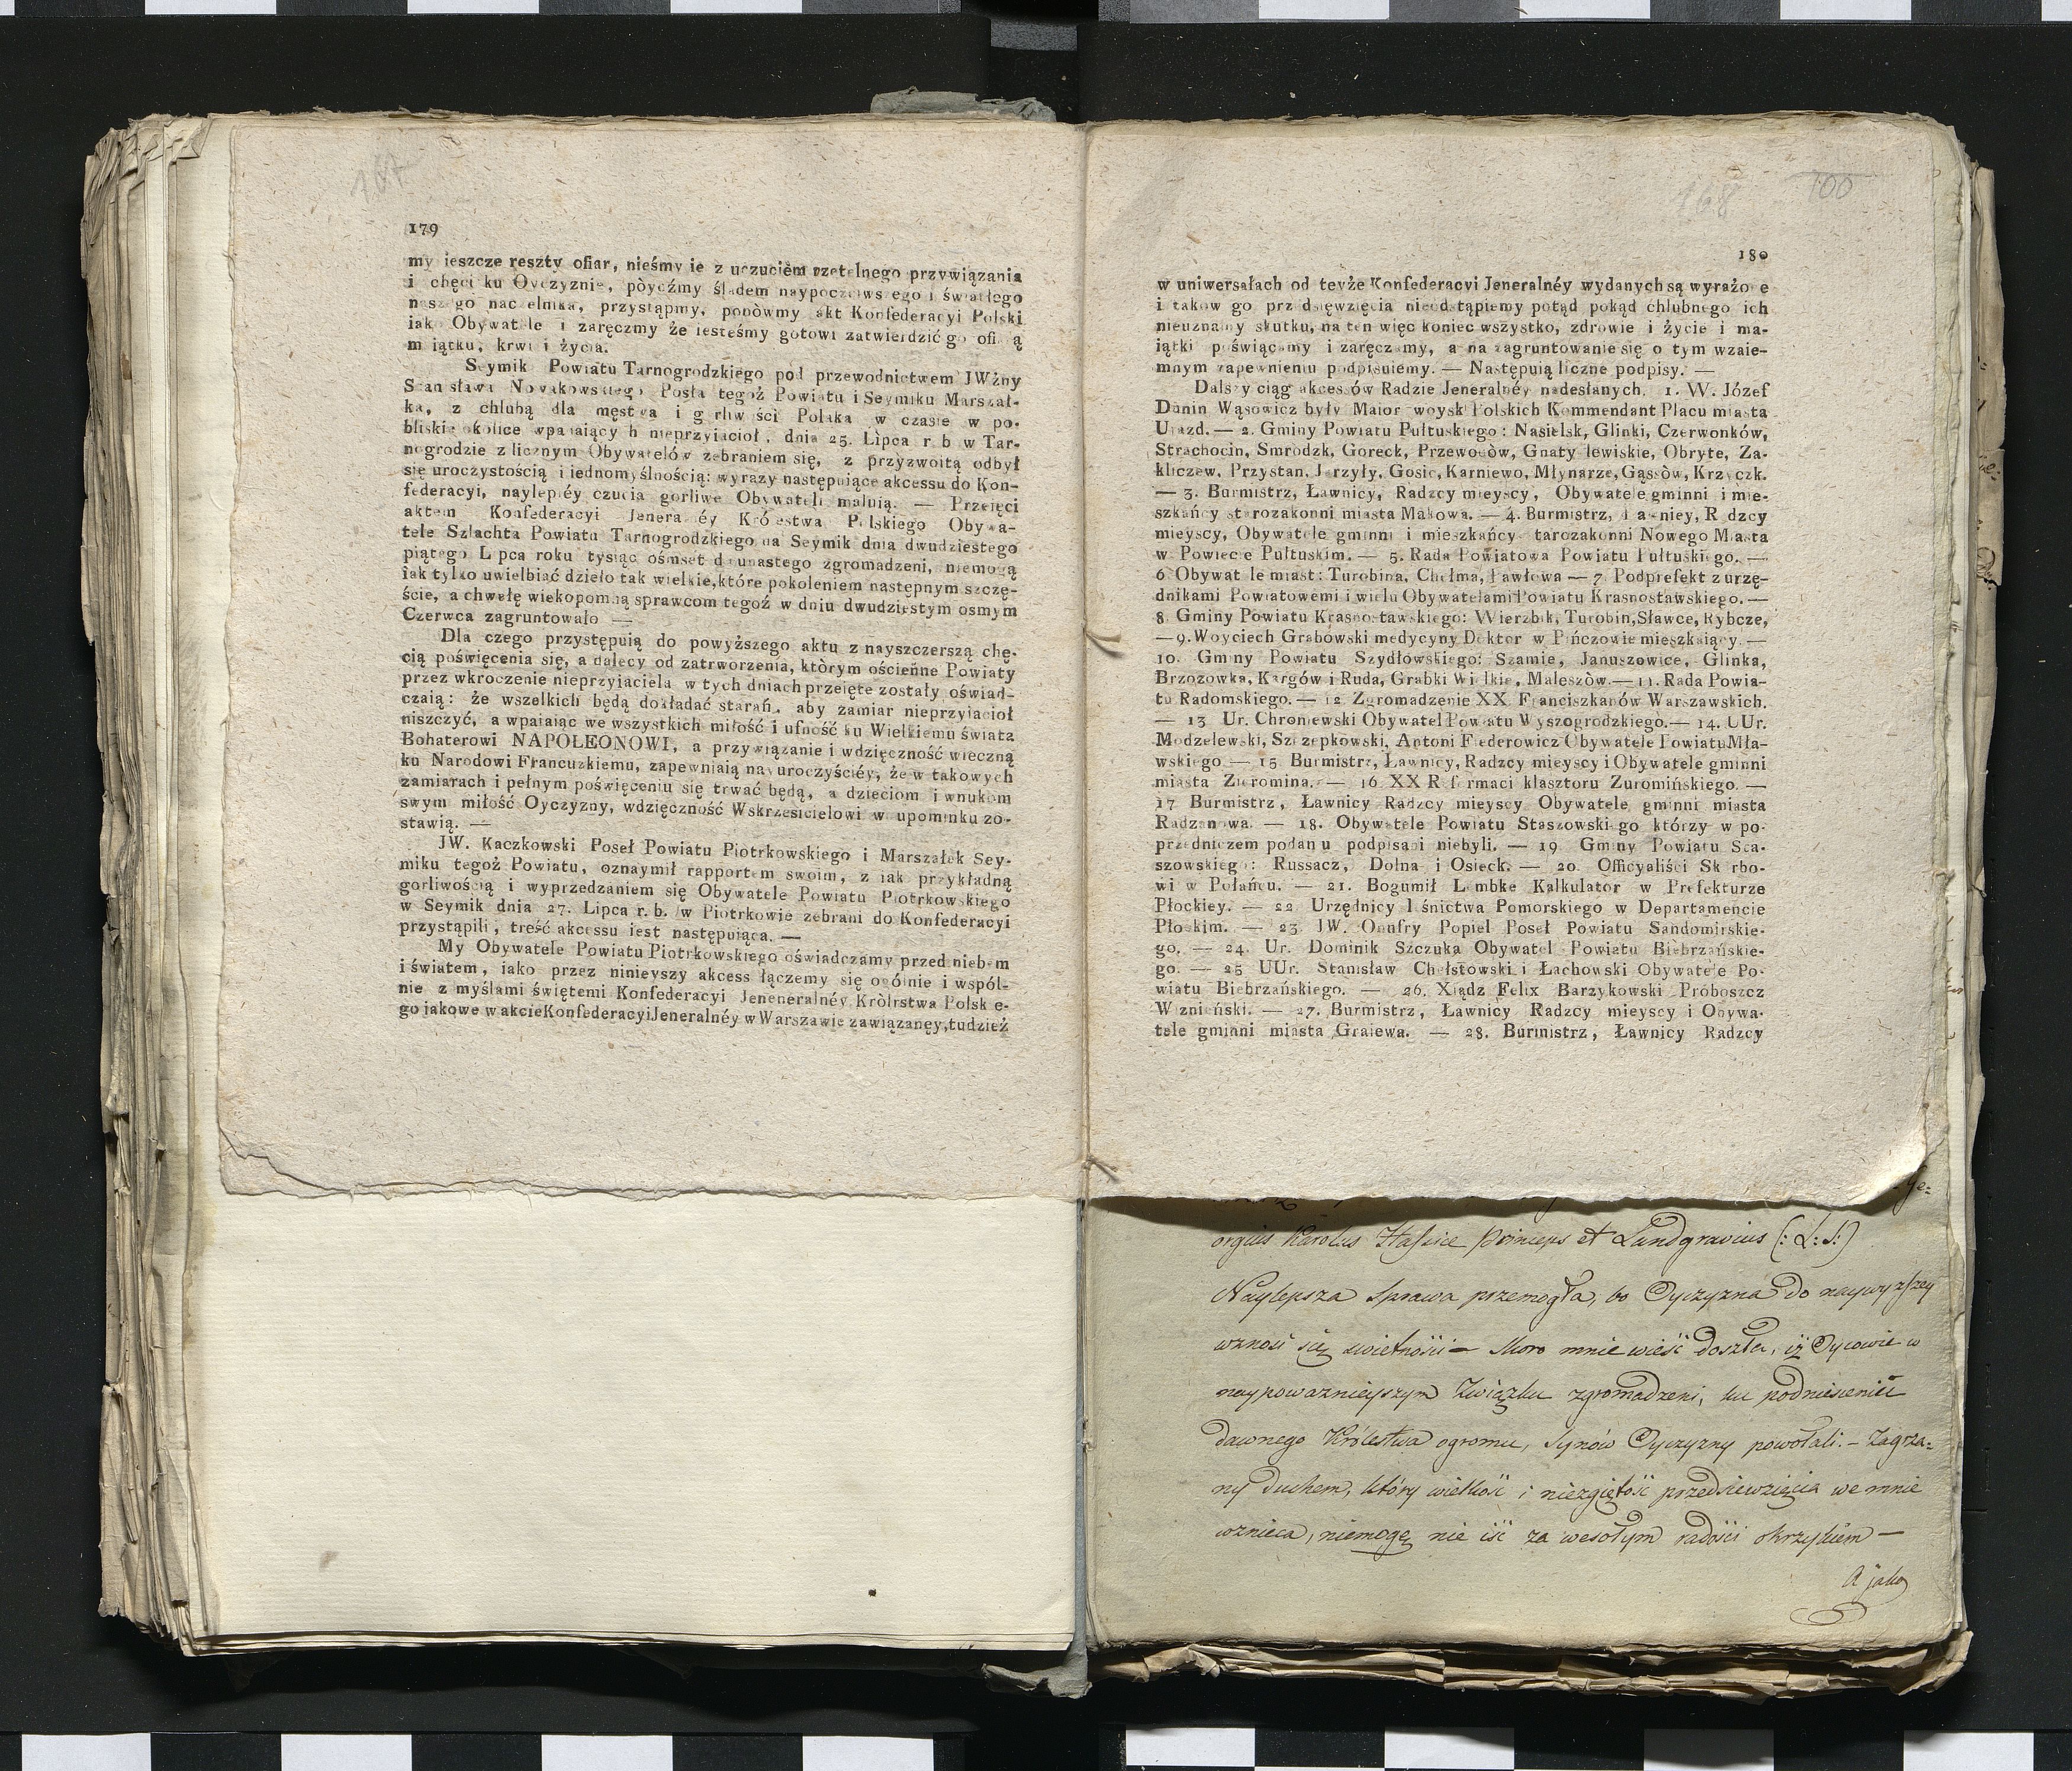 167
179
my ieszcze reszty ofiar, nieśmy ie z uczuciêm rzetelnego przywiązania
i chęci ku Oyczyznie, pòyeźmy śladem naypoczciwszego i światłego
naszego naczelnika, przystąpmy, ponòwmy akt Konfederacyi Polski
iako Obywatele i zaręczmy że iesteśmy gotowi zatwierdzić go ofiarą
maiątku, krwi i życia.
Seymik Powiatu Tarnogrodzkiego pod przewodnictwem JWżny
Stanisława Nowakowskiego Posła tegoż Powiatu i Seymiku Marszał-
ka, z chlubą dla męstwa i gorliwości Polaka w czasie w po-
bliskie okolice wpadaiących nieprzyiacioł, dnia 25. Lipca r b w Tar-
nogrodzie z licznym Obywatelów zebraniem się, z przyzwoitą odbył
się uroczystością i iednomyślnością: wyrazy następuiące akcessu do Kon-
federacyi, naylepiéy czucia gorliwe Obywateli maluią. — Przeięci
aktem Konfederacyi Jeneralnéy Królestwa Polskiego Obywa-
tele Szlachta Powiatu Tarnogrodzkiego na Seymik dnia dwudziestego
piątego Lipca roku tysiąc ośmset dwunastego zgromadzeni, niemogą
iak tylko uwielbiać dzieło tak wielkie,które pokoleniem następnym szczę-
ście, a chwałę wiekopomną sprawcom tegoż w dniu dwudziestym osmym
Czerwca zagruntowało —
Dla czego przystępuią do powyższego aktu z nayszczerszą chę-
cią poświęcenia się, a dalecy od zatrworzenia, którym ościenne Powiaty
przez wkroczenie nieprzyiaciela w tych dniach przeięte zostały oświad-
czaią: że wszelkich będą dokładać starań, aby zamiar nieprzyiacioł
niszczyć, a wpaiaiąc we wszystkich miłość i ufność ku Wielkiemu świata
Bohaterowi NAPOLEONOWI, a przywiązanie i wdzięczność wieczną
ku Narodowi Francuzkiemu, zapewniaią nayuroczyściéy, że w takowych
zamiarach i pełnym poświęceniu się trwać będą, a dzieciom i wnukom
swym miłość Oyczyzny, wdzięczność Wskrzesicielowi w upominku zo-
stawią. —
JW. Kaczkowski Poseł Powiatu Piotrkowskiego i Marszałek Sey-
miku tegoż Powiatu, oznaymił rapportem swoim, z iak przykładną
gorliwością i wyprzedzaniem się Obywatele Powiatu Piotrkowskiego
w Seymik dnia 27. Lipca r. b. w Piotrkowie zebrani do Konfederacyi
przystąpili, treść akcessu iest następuiąca. —
My Obywatele Powiatu Piotrkowskiego oświadczamy przed niebem
i światem, iako przez ninieyszy akcess łączemy się ogólnie i wspól-
nie z myślami świętemi Konfederacyi Jeneneralnéy Kròlrstwa Polskie-
go iakowe w akcie Konfederacyi Jeneralnéy w Warszawie zawiązanęy,tudzież
168 100
180
w uniwersałach od teyże Konfederacyi Jeneralnéy wydanych są wyrażone
i takowego przedsięwzięcia nieodstąpiemy potąd pokąd chlubnego ich
nieuznamy skutku, na ten więc koniec wszystko, zdrowie i życie i ma-
iątki poświącamy i zaręczamy, a na zagruntowanie się o tym wzaie-
mnym zapewnieniu podpisuiemy. — Następuią liczne podpisy. —
Dalszy ciąg akcessów Radzie Jeneralnéy nadesłanych. 1. W. Józef
Dunin Wąsowicz były Maior woysk Polskich Kommendant Placu miasta
Uiazd. — 2. Gminy Powiatu Pułtuskiego: Nasielsk, Glinki, Czerwonków,
Strachocin, Smrodzk, Goreck, Przewodòw, Gnaty lewiskie, Obryte, Za-
kliczew, Przystań, Jarzyły, Gosie, Karniewo, Młynarze, Gąsòw, Krzyczk.
— 3. Burmistrz, Ławnicy, Radzcy mieyscy, Obywatele gminni i mie-
szkańcy starozakonni miasta Makowa. — 4. Burmistrz, Ławniey, Radzcy
mieyscy, Obywatele gminni i mieszkańcy starozakonni Nowego Miasta
w Powiecie Pułtuskim. — 5. Rada Powiatowa Powiatu Pułtuskiego. —
6 Obywatele miast: Turobina, Chełma, Pawłowa — 7 Podprefekt z urzę-
dnikami Powiatowemi i wielu Obywatelami Powiatu Krasnostawskiego. —
8 Gminy Powiatu Krasnostawskiego: Wierzbik, Turobin, Sławce, Rybcze,
— 9. Woyciech Grabowski medycyny Doktor w Pińczowie mieszkaiący. —
10. Gminy Powiatu Szydłowskiego: Szamie, Januszowice, Glinka,
Brzozowka, Kargów i Ruda, Grabki Wielkie, Maleszòw. — 11. Rada Powia-
tu Radomskiego. — 12 Zgromadzenie XX Franciszkanów Warszawskich.
— 13 Ur. Chroniewski Obywatel Powiatu Wyszogrodzkiego. — 14. UUr.
Modzelewski, Szczepkowski, Antoni Fiederowicz Obywatele Powiatu Mła-
wskiego — 15 Burmistrz, Ławnicy, Radzcy mieyscy i Obywatele gminni
miasta Zuromina. — 16 XX Reformaci klasztoru Zuromińskiego. —
17 Burmistrz, Ławnicy Radzcy mieyscy Obywatele gminni miasta
Radzanowa. — 18. Obywatele Powiatu Staszowskiego którzy w po-
przedniczem podaniu podpisani niebyli. — 19 Gminy Powiatu Sta-
szowskiego: Russacz, Dolna i Osieck. — 20 Officyaliści Skarbo-
wi w Połańcu. — 21. Bogumił Lembke Kalkulator w Prefekturze
Płockiey. — 22 Urzędnicy Leśnictwa Pomorskiego w Departamencie
Płockim. — 23 JW. Onufry Popiel Poseł Powiatu Sandomirskie-
go. — 24. Ur. Dominik Szczuka Obywatel Powiatu Biebrzańskie-
go. — 25 UUr. Stanisław Chełstowski i Łachowski Obywatele Po-
wiatu Biebrzańskiego. — 26. Xiądz Felix Barzykowski Proboszcz
Wąznieński. — 27. Burmistrz, Ławnicy Radzcy mieyscy i Obywa-
tele gminni miasta Graiewa. — 28. Burmistrz, Ławnicy Radzcy
Ge=
orgius Karolus Hassiæ Princeps et Landgravius (: L: S:)
Naylepsza sprawa przemogła, bo Oyczyzna do naywyższey
wznosi się świetności — Skoro mnie wieść doszła, iż Oycowie w
naypoważnieyszym Związku zgromadzeni, ku podniesieniu
dawnego Królestwa ogromu, synów Oyczyzny powołali. — Zagrza=
ny duchem, który wielkość i niezgiętość przedsiewzięcia we mnie
wznieca, niemogę nie iść za wesołym radości okrzykiem —
A jako